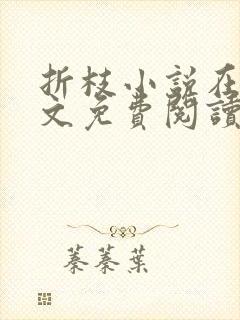 折枝小说在
文免費閱讀
蓁蓁葉